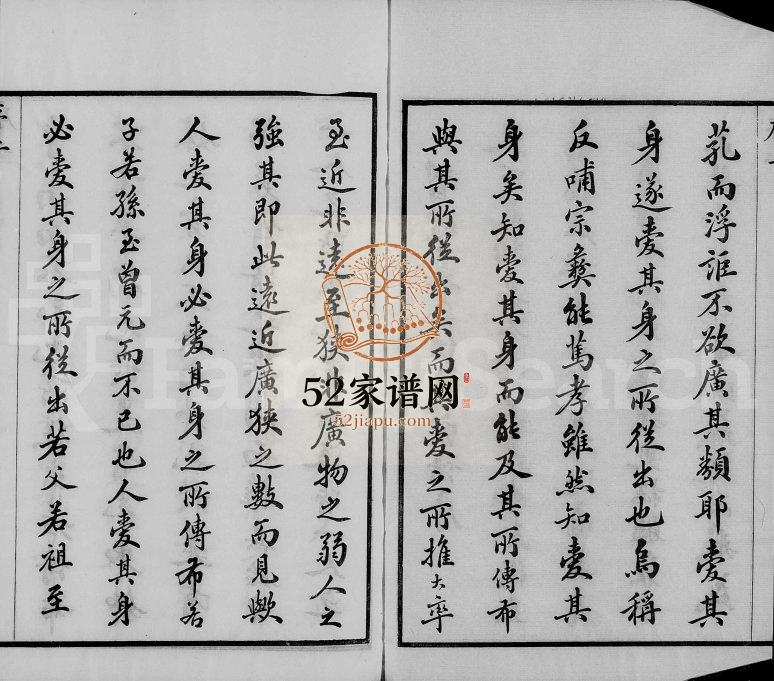 乳而浮誰不欲廣其類耶愛其
身遂愛其身之所從出也烏稱
反哺宗彝能篤孝雖然知愛其
身矣知愛其身而能及其所傳布
與其所從出矣而愛之所推大率
至近非遠至狹非廣物之弱人之
強其即此遠近廣狹之數而見歟
人愛其身必愛其身之所傳布若
子若孫至曾元而不已也人愛其身
必愛其身之所從出若父若祖至
52家谱网
52jiapu.com
FamilySearch